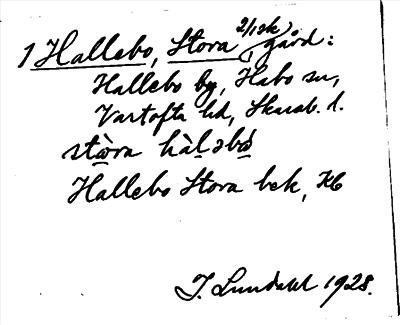 1 Hallebo, Stora, 2/1sk gård:
Hallebo by, Habo sn,
Vartofta hd, Skarab. l.
stɷ̀ra hàl əbɷ
Hallebo Stora bek, Kb
J. Lundahl 1928.